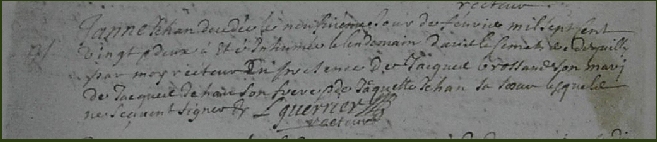 recteur
Janne Jehan decedee le neufvieme jour de feuvrie mil sept sent
vingt et deux a Eté inhumée le lendemain dans le simetiere de
par moy recteur En presence de Jacque Brossand son mary
de Jacque Jehan son frere et de Jaquette Jehan sa soeur lesquels
ne scavent signer L guernier
recteur